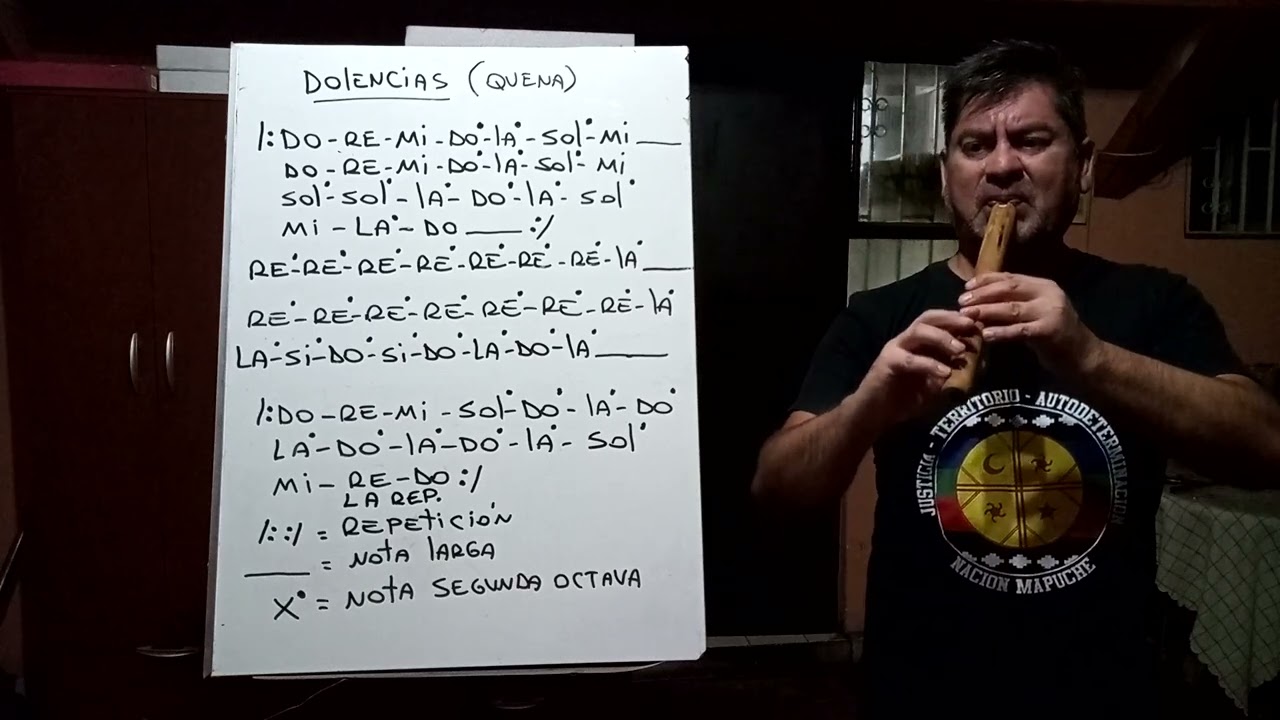 DOLENCIAS (QUENA)
/: DO - RE - Mi - DO• - lA• - Sol• - Mi ____
DO - RE - Mi - DO• - lA• - Sol• - Mi
Sol• - Sol• - lA• - DO• - lA• - Sol•
Mi - LA• - DO ____ :/
RE• - RE• - RE• - RE• - RE• - RE• - RE• - lA• ____
RE• - RE• - RE• - RE• - RE• - RE• - RE• - lA•
LA• - Si• - DO• - Si• - DO• - LA• - DO• - lA• ____
/: DO - RE - Mi - Sol• - DO• - lA• - DO•
LA• - DO• - lA• - DO• - lA• - Sol•
Mi - RE - DO :/
LA REP.
/: :/ = REPETICIÓN
____ = NOTA lARGA
X• = NOTA SEGUNDA OCTAVA
JUSTICIA - TERRITORIO - AUTODETERMINACION
NACION MAPUCHE